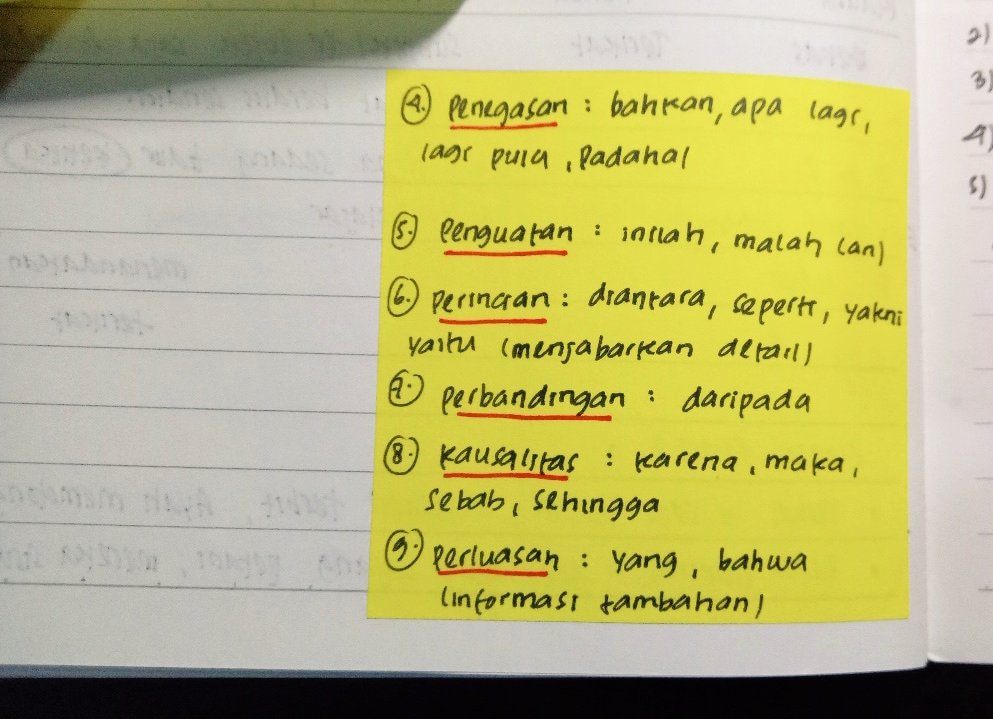 4. Penegasan : bahkan, apa lagi,
lagi pula, Padahal
5. Penguatan : inilah, malah (an)
6. Perincian : diantara, seperti, yakni
yaitu (menjabarkan detail)
7. Perbandingan : daripada
8. Kausalitas : karena, maka,
sebab, sehingga
9. Perluasan : yang, bahwa
(informasi tambahan)
2)
3)
4)
5)